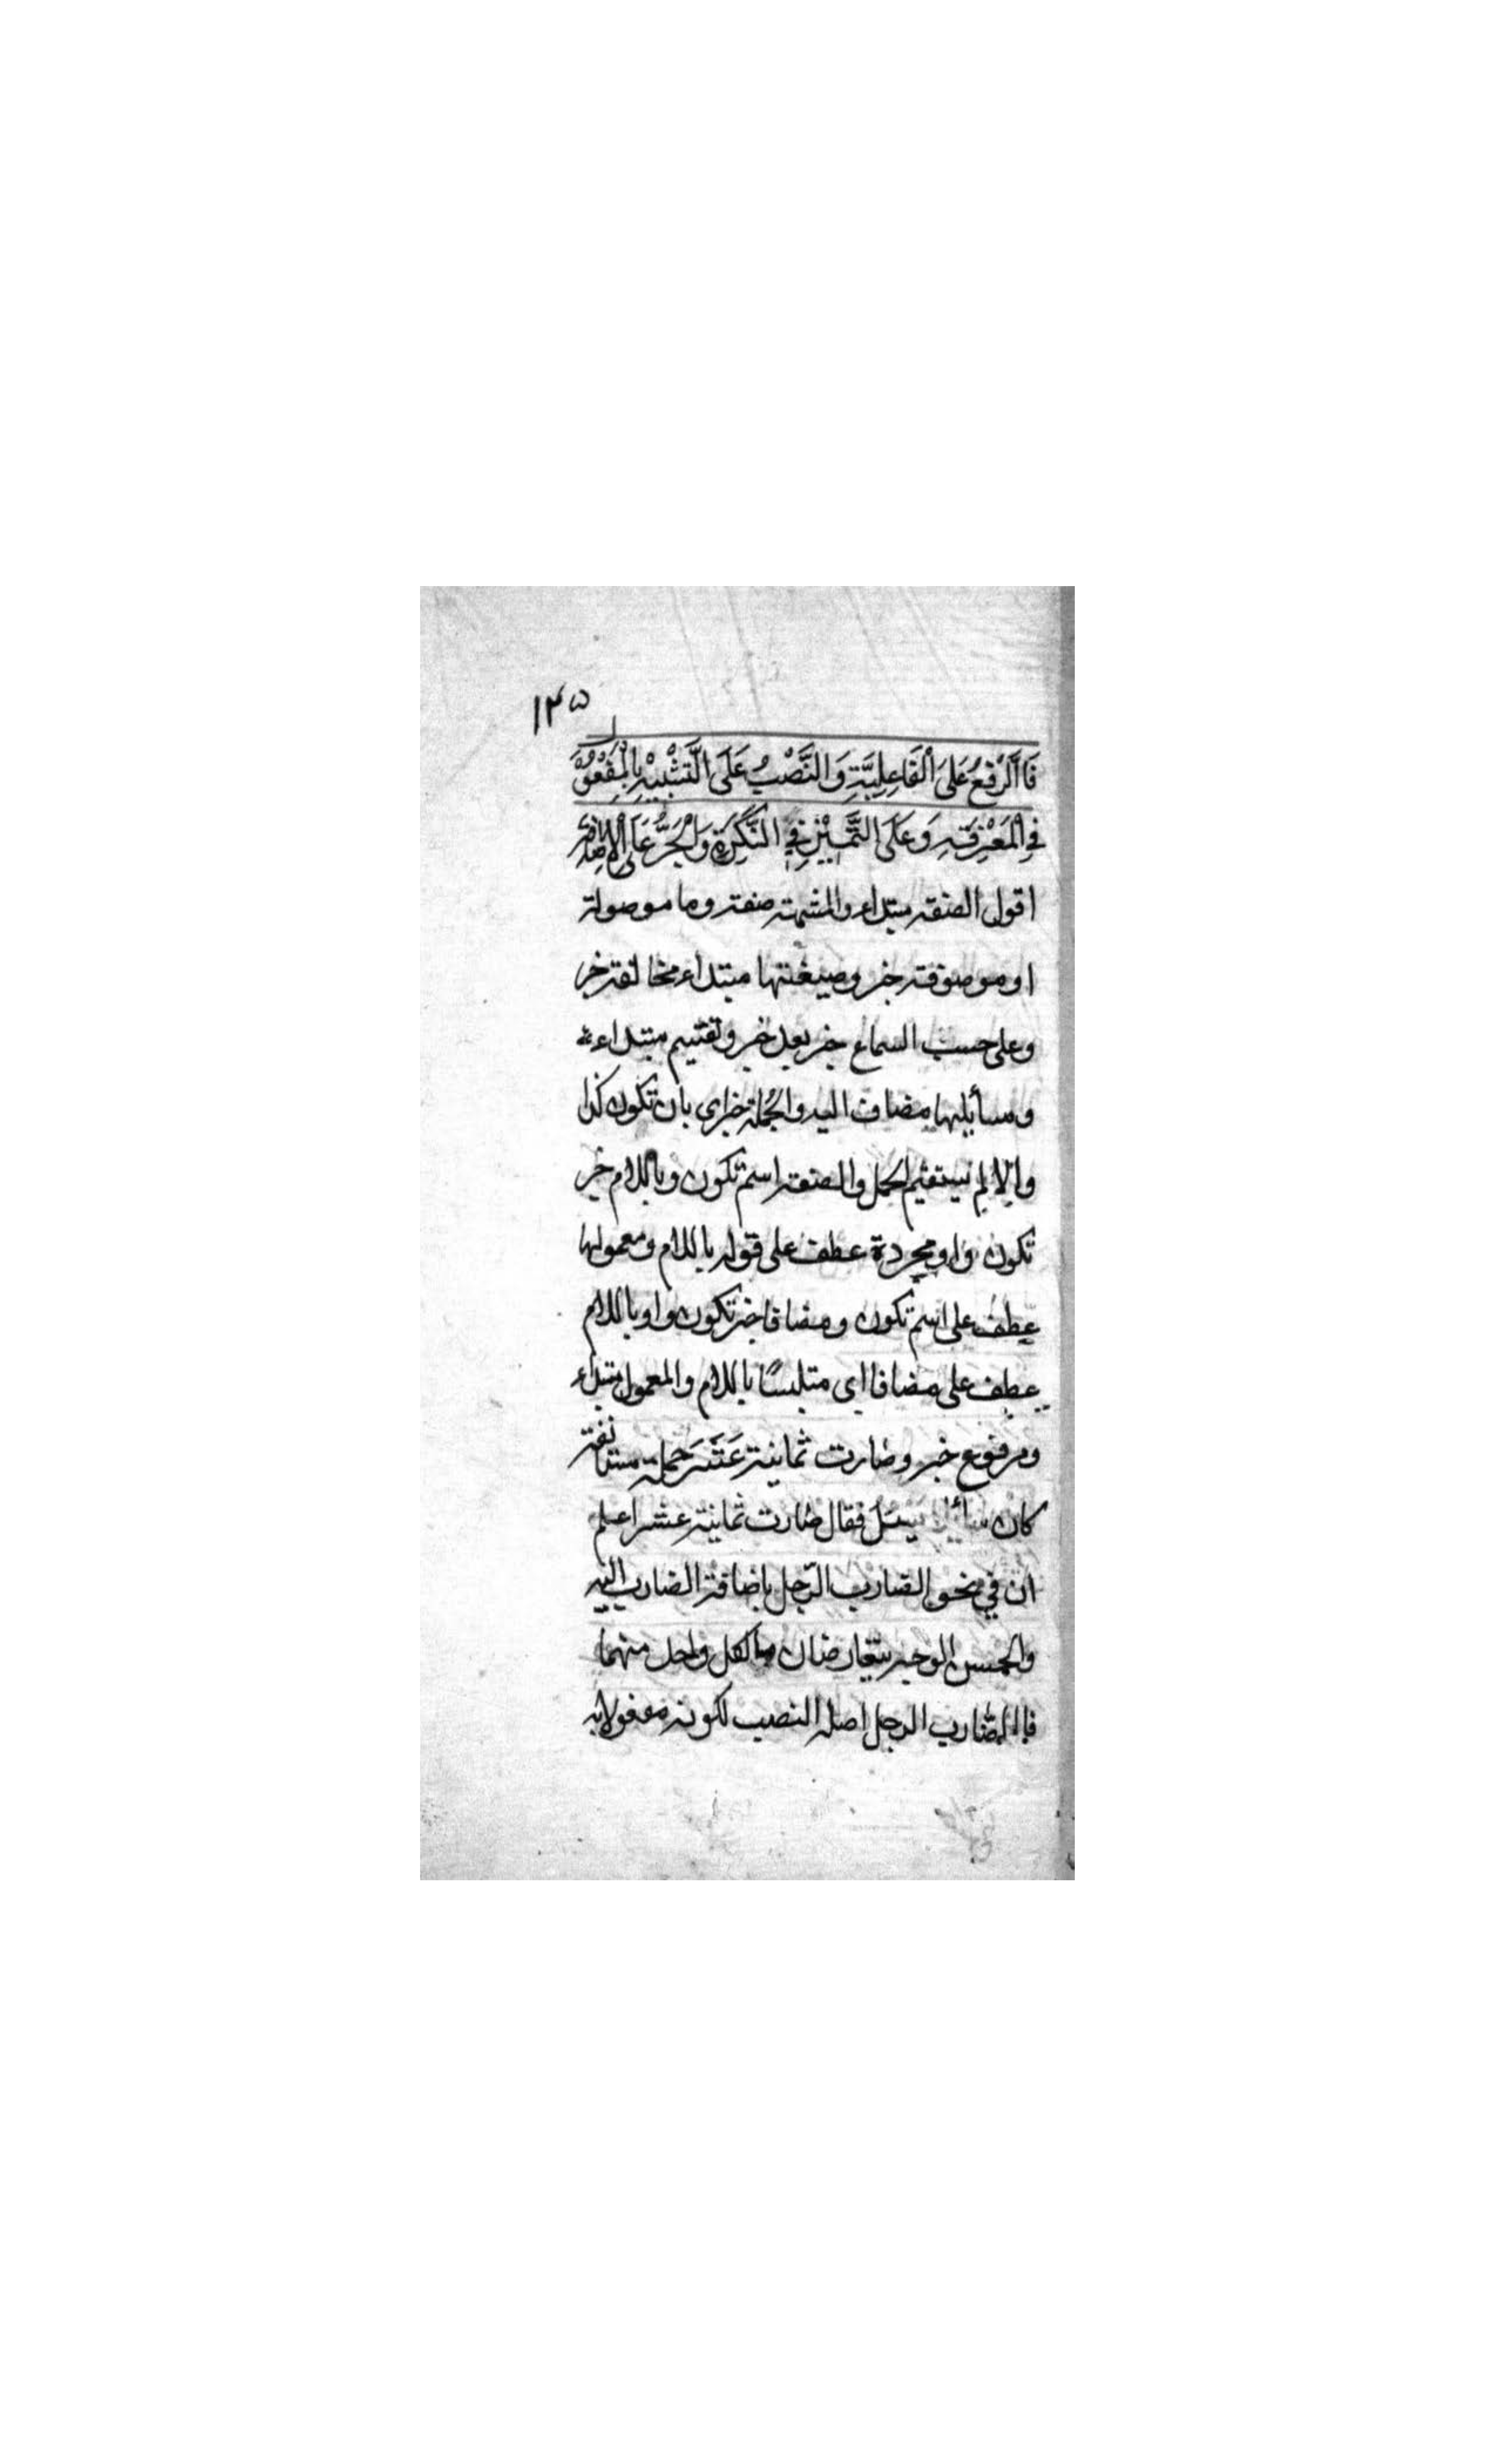 ١٢٥
فَاالرَّفْعُ عَلَى الْفَاعِلِيَّةِ وَالنَّصْبُ عَلَى التَّشْبِيْهِ بِالْمَفْعُوْلِ
فِي الْمَعْرِفَةِ وَعَلَى التَّمْيِيْزِ فِي النَّكِرَةِ وَالْجَرُّ عَلَى الْاِضَافَةِ
اقول الصفة مبتداء والمشبهة صفة وما موصولة
او موصوفة خبر وصيغتها مبتداء مخالفة خبر
وعلى حسب السماع خبر بعد خبر وتقسيم مبتداء
ومسائلها مضاف اليه والجملة خبر اى بان تكون كذا
والا لم يستقيم الحمل والصفة اسم تكون وباللام خبر
تكون واو مجردة عطف على قوله باللام ومعمولها
عطف على اسم تكون ومضافا خبر تكون واو باللام
عطف على مضافا اى متلبسًا باللام والمعمول مبتداء
ومرفوع خبر وصارت ثمانية عَشَرَ جملة مستانفة
كان سائلا يسئل فقال صارت ثمانية عشر اعلم
ان في نحو الضارب الرّجل باضافة الضارب اليه
والحسن الوجه يتعارضان لكل واحد منهما
فاالضارب الرجل اصله النصب لكونه مفعولا به